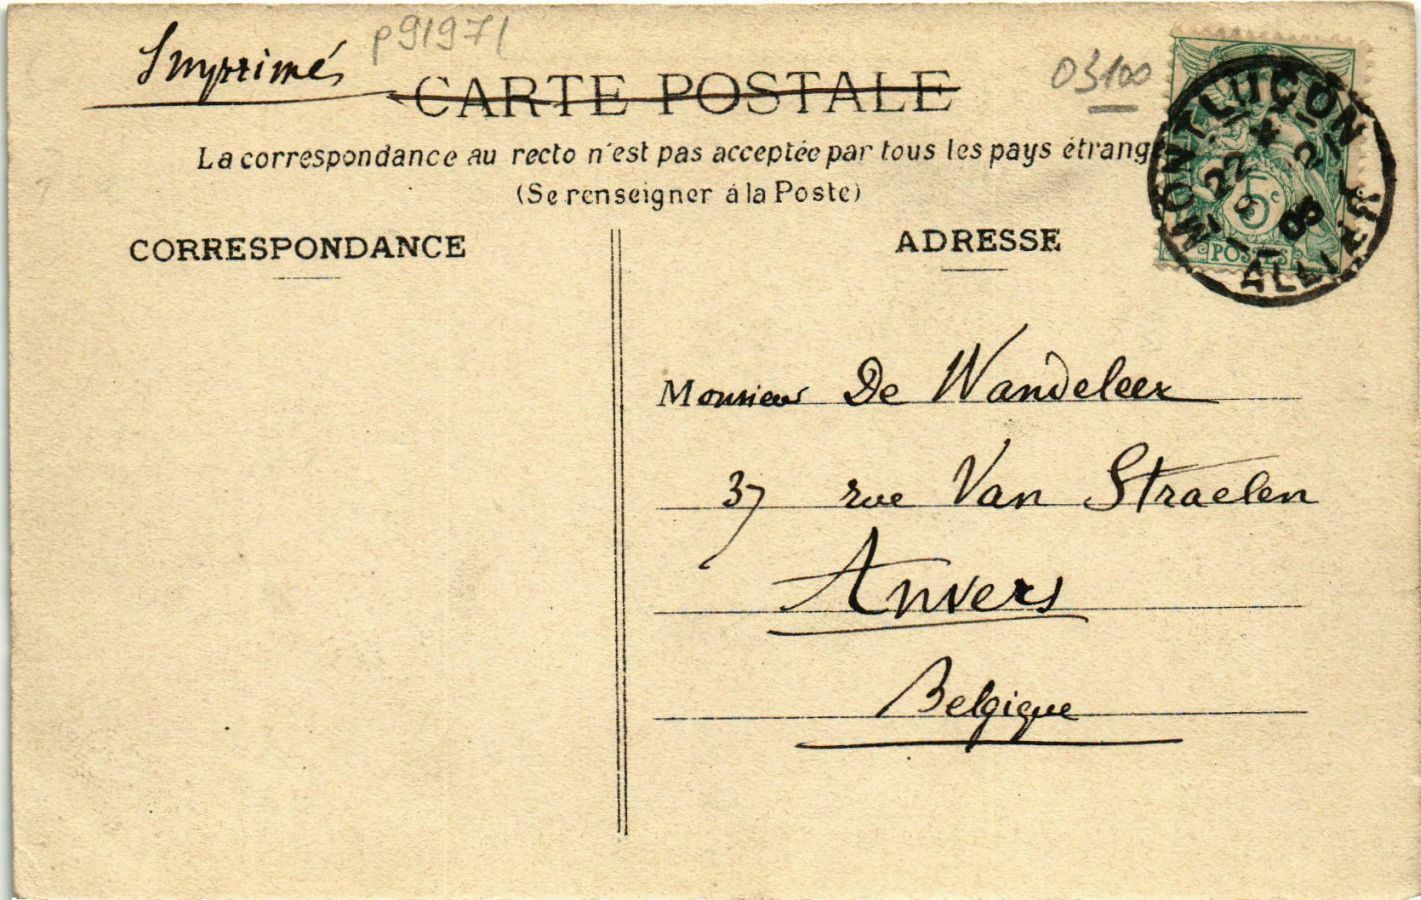 Imprimés
p91971
CARTE POSTALE
03100
La correspondance au recto n'est pas acceptée par tous les pays étrang
(Se renseigner à la Poste)
CORRESPONDANCE
ADRESSE
MONTLUÇON
22
2
05
ALLIER
5c
POSTES
Monsieur De Wandeleer
37 rue Van Straelen
Anvers
Belgique